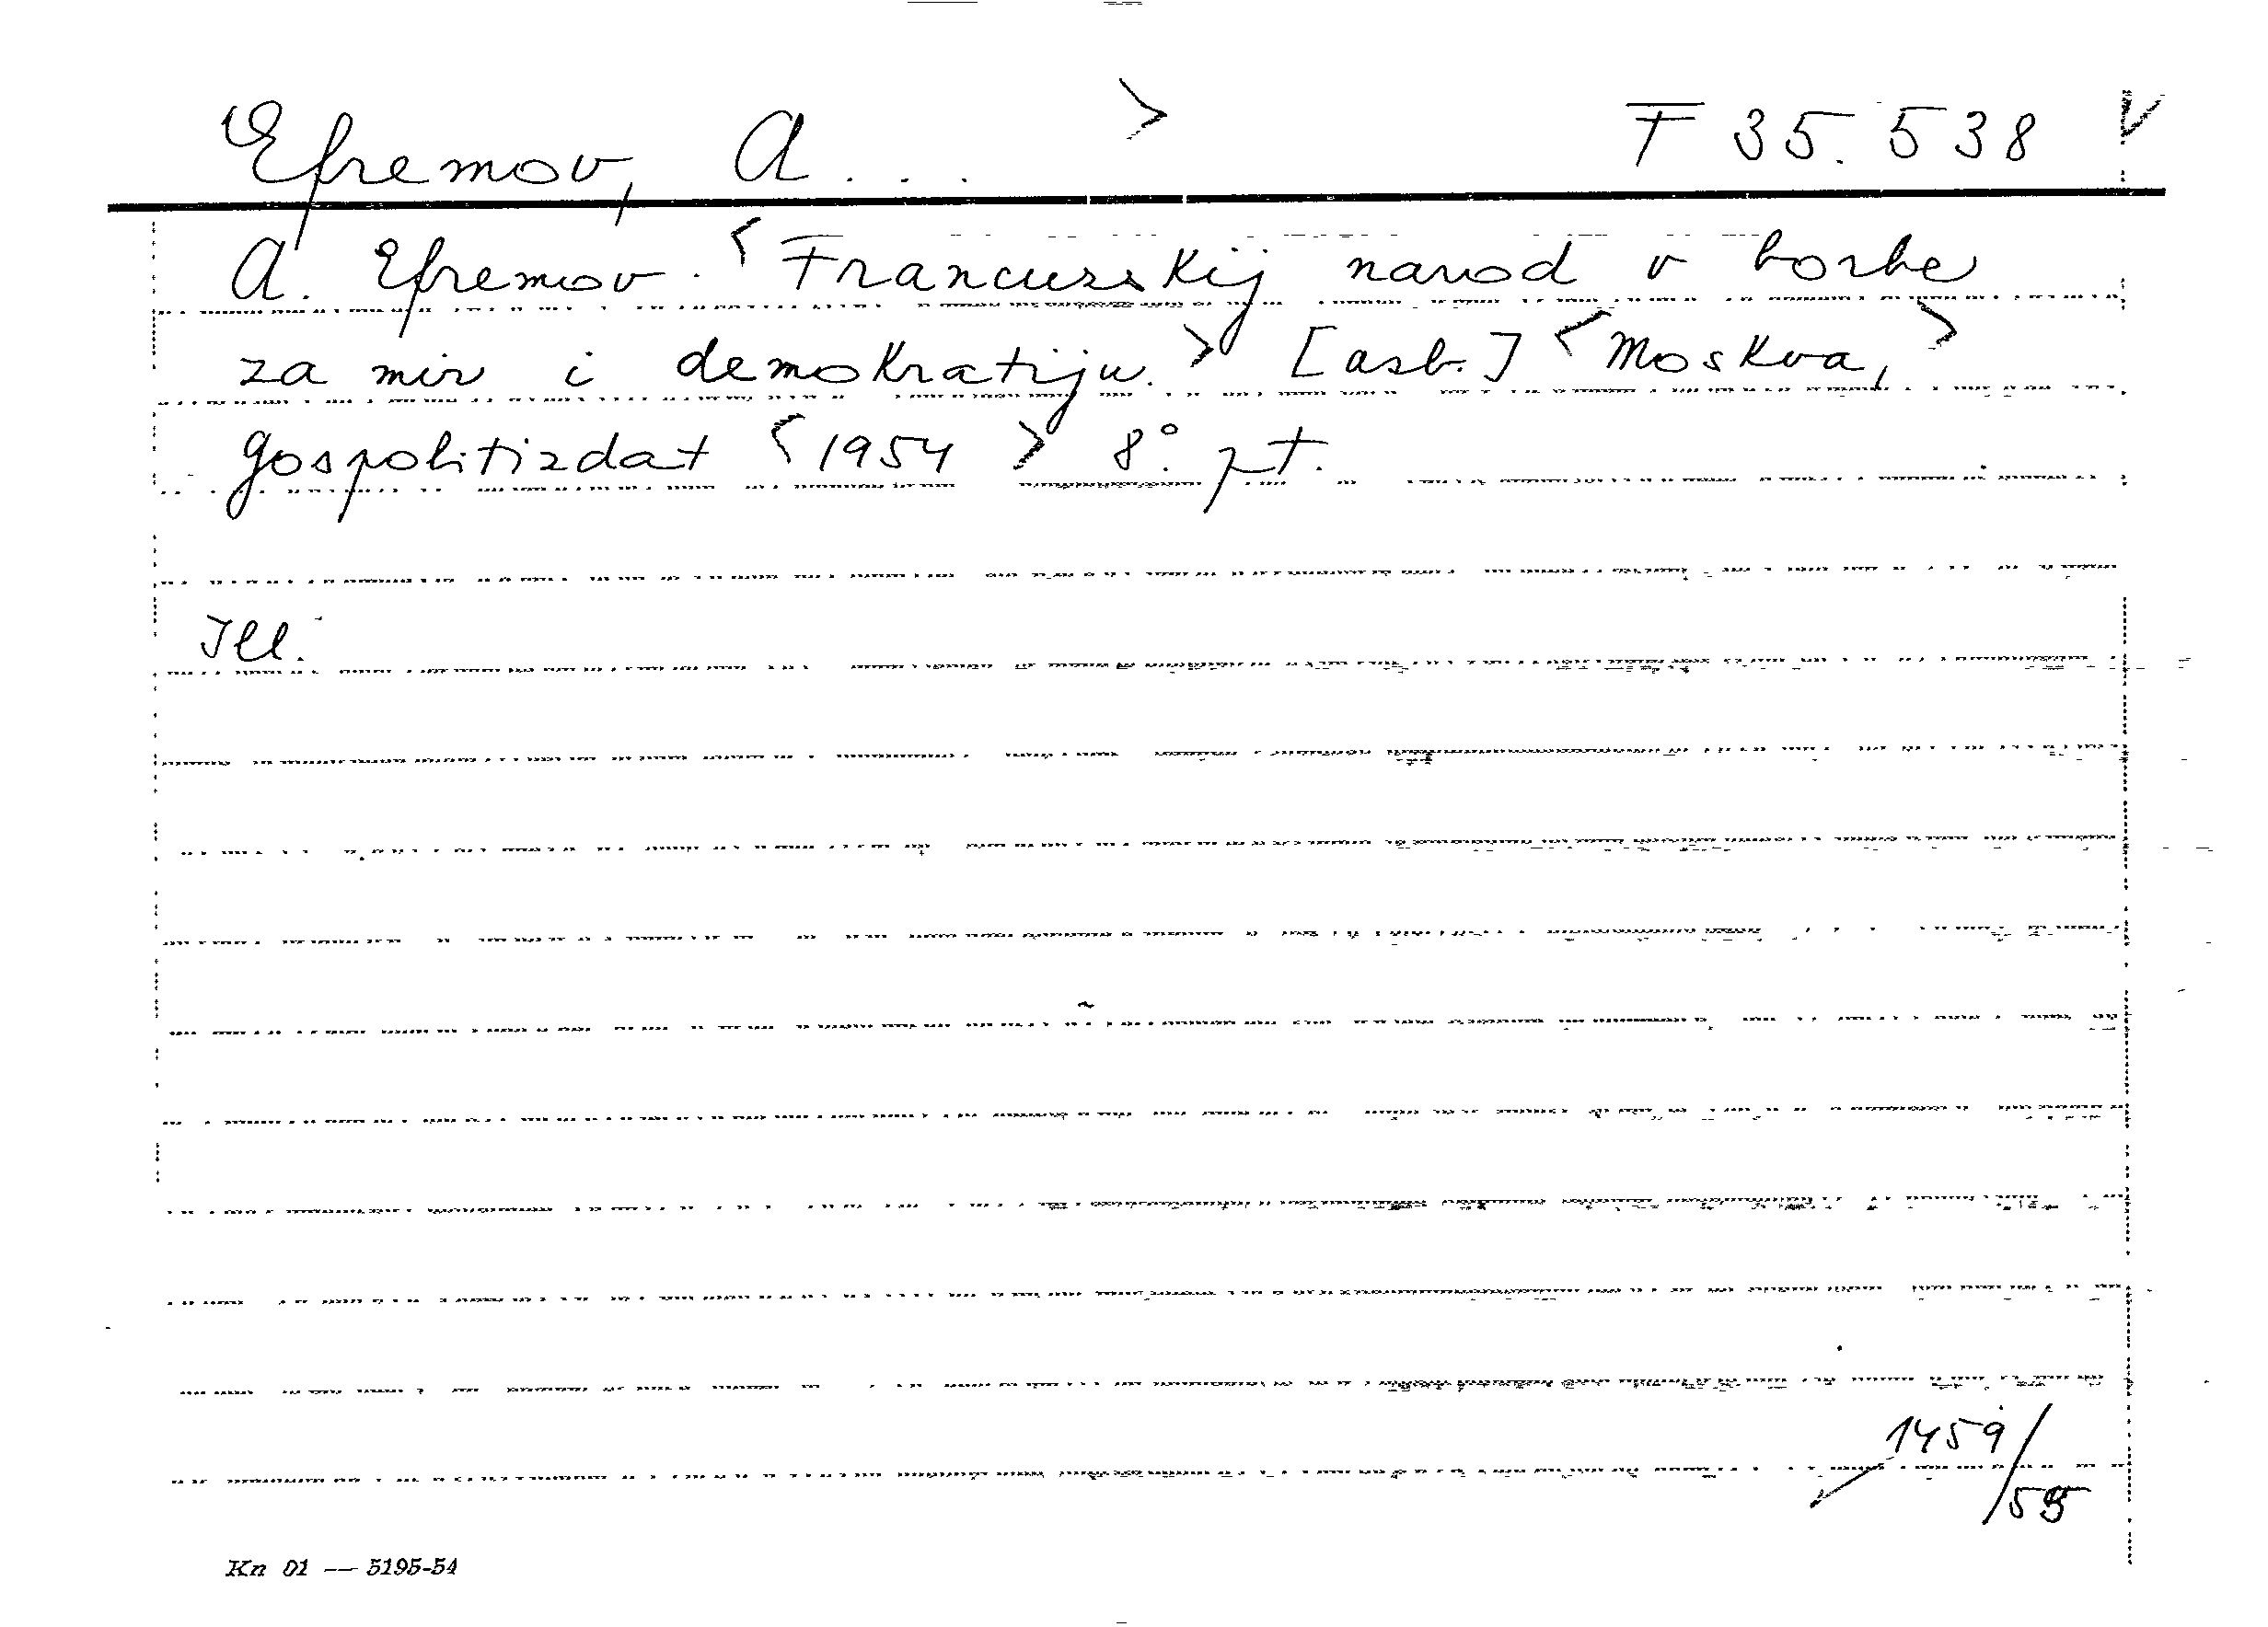 Efremov, A... > F 35.538 V
A. Efremov. < Francuzskij narod v borbe
za mir i demokratiju. > [asb.] < Moskva, >
Gospolitizdat < 1954 > 8° pt.
Ill.
1459/
55
Kn 01 — 5195-54